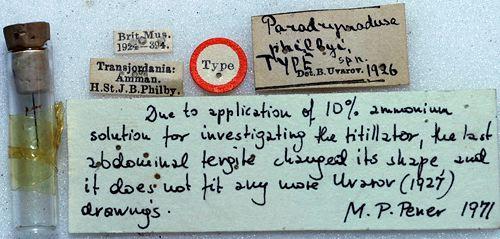 Brit. Mus.
1924-394.
Transjordania:
Amman.
H.St.J.B.Philby.
Type
Paradrymadusa
philbyi,
TYPE spn.
Det. B. Uvarov. 1926
Due to application of 10% ammonium
solution for investigating the titillator, the last
abdominal tergite changed its shape and
it does not fit any more Uvarov (1927)
drawings.
M. P. Pener 1971